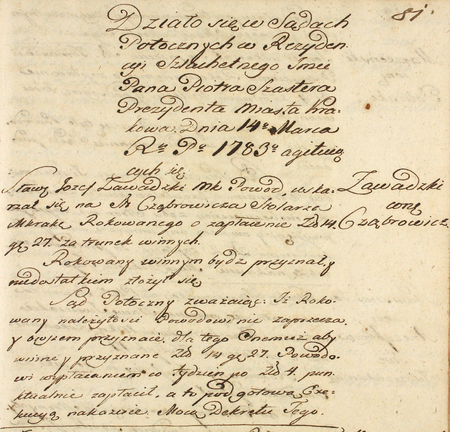 81.
Działo się w Sądach
Potocznych w Rezyden
cyi Szlachetnego Imci
Pana Piotra Szastera
Prezydenta Miasta Kra
kowa Dnia 14º Marca
Rº Pº 1783º agituią
cych się
Stawi Jozef Zawadzki Mk Powod, uska
rzał się na Stolarza
Rokowanego o zapłacenie Zł 14.
gr 27. za trunek winnych.
Zawadzki
Cząbrowicz
Rokowany winnym bydź przyznał, y
niedostatkiem złożył się
Sąd Potoczny zważaiąc: Iż Roko
wany należytości Powodowi nie zaprzecza,
y owszem przyznaie, dla tego Onemuż aby
winne y przyznane Zł 14 gr 27. Powodo
wi wypłacaniem co tydzień po Zł 4. pun
ktualnie zapłacił, a to pod gotową Exe
kucyą nakazuie. Mocą Dekretu Tego.